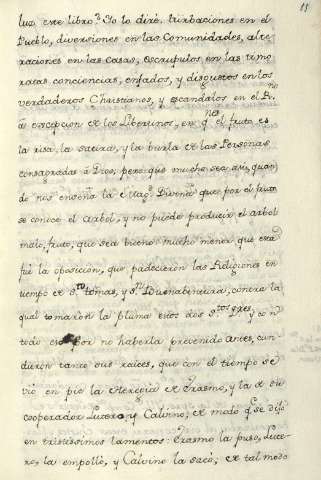 11
luz este libro? Yo lo diré: turbaciones en el
Pueblo, diversiones en las Comunidades, alte
raciones en las casas, escrupulos en las timo
ratas conciencias, enfados, y disgustos en los
verdaderos Christianos, y escandalos en
a excepcion de los Libertinos, en qnes el fruto es
la risa, la satira, y la burla de las Personas
consagradas à Dios; pero qué mucho sea asi, quan
do nos enseña la Magd. Divina que por el fruto
se conoce el arbol, y no puede producir el arbol
malo, fruto, que sea bueno: mucho menor que esta
fué la oposicion, que padecieron las Religiones en
tiempo de Sto. tomas, y Sn. Buenabentura, contra la
qual tomaròn la pluma estos dos Stos. y con
todo eso por no haberla prevenido antes, cun
dieron tanto sus raices, que con el tiempo se
vió en pie la Heregia de Erasmo, y la de su
cooperador Lutero, y Calvino; de modo qe. se dijo
en tristissimos lamentos: Erasmo la puso, Lute
ro, la empolló, y Calvino la sacó; de tal modo